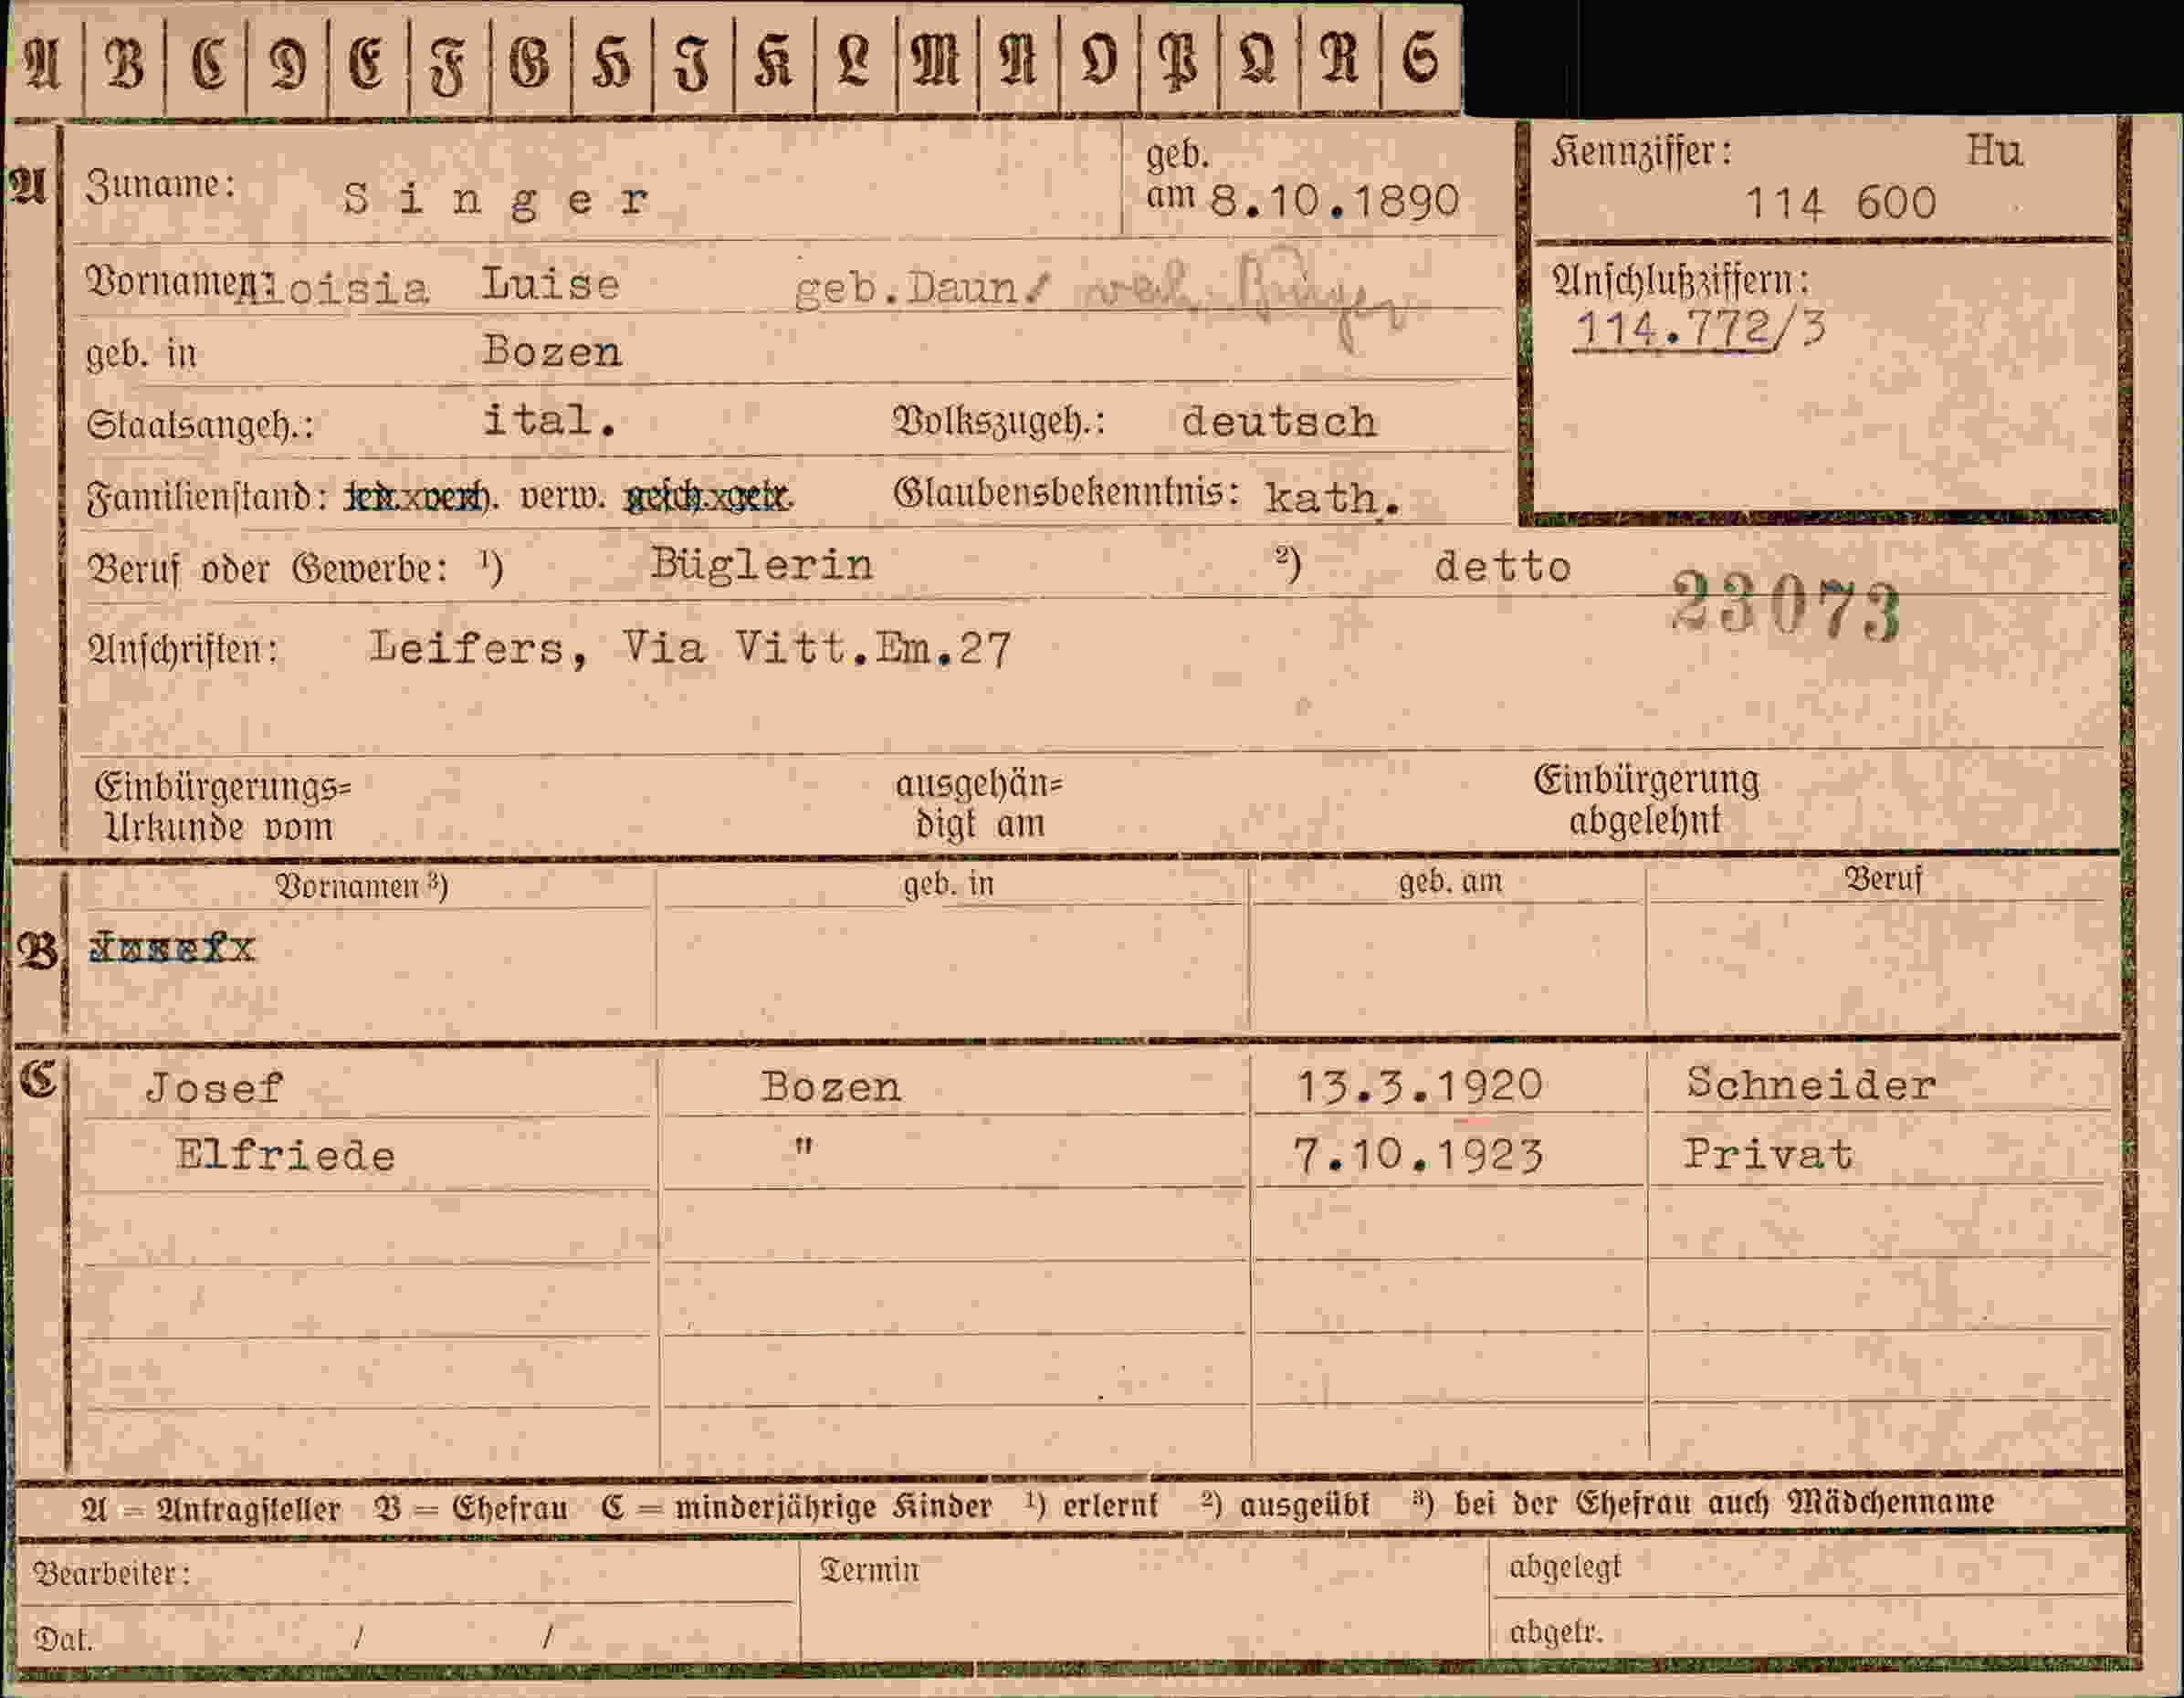 A B C D E F G H I K L M N O P Q R S
A Zuname: Singer geb. am 8.10.1890
Kennziffer: Hu
114 600
Vornamen: Aloisia Luise geb.Daun
Anschlußziffern:
114.772/3
geb. in Bozen
Staatsangeh.: ital. Volkszugeh.: deutsch
Familienstand: led. verh. verw. gesch. getr. Glaubensbekenntnis: kath.
Beruf oder Gewerbe: ¹) Büglerin ²) detto
23073
Anschriften: Leifers, Via Vitt.Em.27
Einbürgerungs= ausgehän= Einbürgerung
Urkunde vom digt am abgelehnt
Vornamen ³) geb. in geb. am Beruf
B Josef
C Josef Bozen 13.3.1920 Schneider
Elfriede " 7.10.1923 Privat
A = Antragsteller B = Ehefrau C = minderjährige Kinder ¹) erlernt ²) ausgeübt ³) bei der Ehefrau auch Mädchenname
Bearbeiter: Termin abgelegt
Dat. / / abgetr.